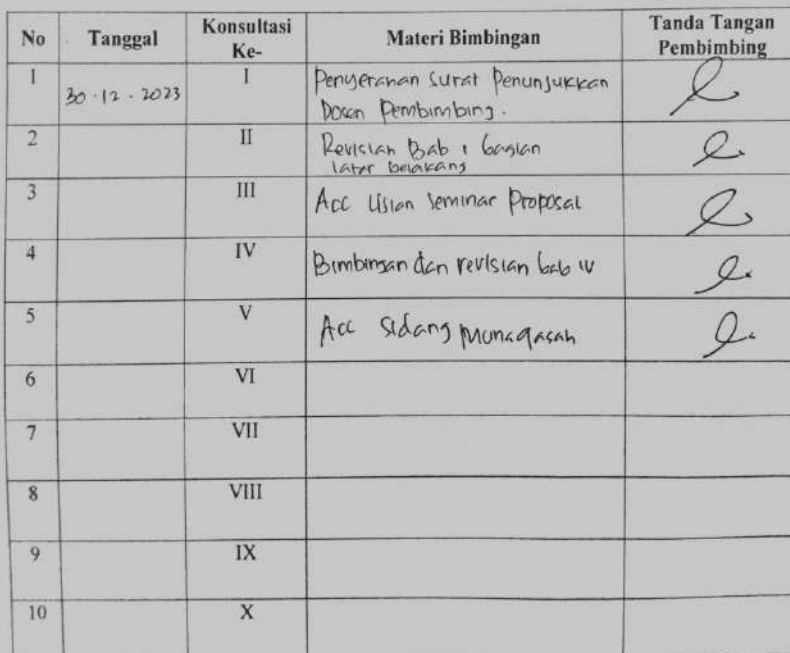 No Tanggal Konsultasi Ke- Materi Bimbingan Tanda Tangan Pembimbing
1 30-12-2023 I Penyerahan Surat Penunjukkan
Dosen Pembimbing.
2 II Revisian Bab 1 bagian
latar belakang
3 III Acc Ujian Seminar Proposal
4 IV Bimbingan dan revisian bab IV
5 V Acc Sidang Munaqasah
6 VI
7 VII
8 VIII
9 IX
10 X